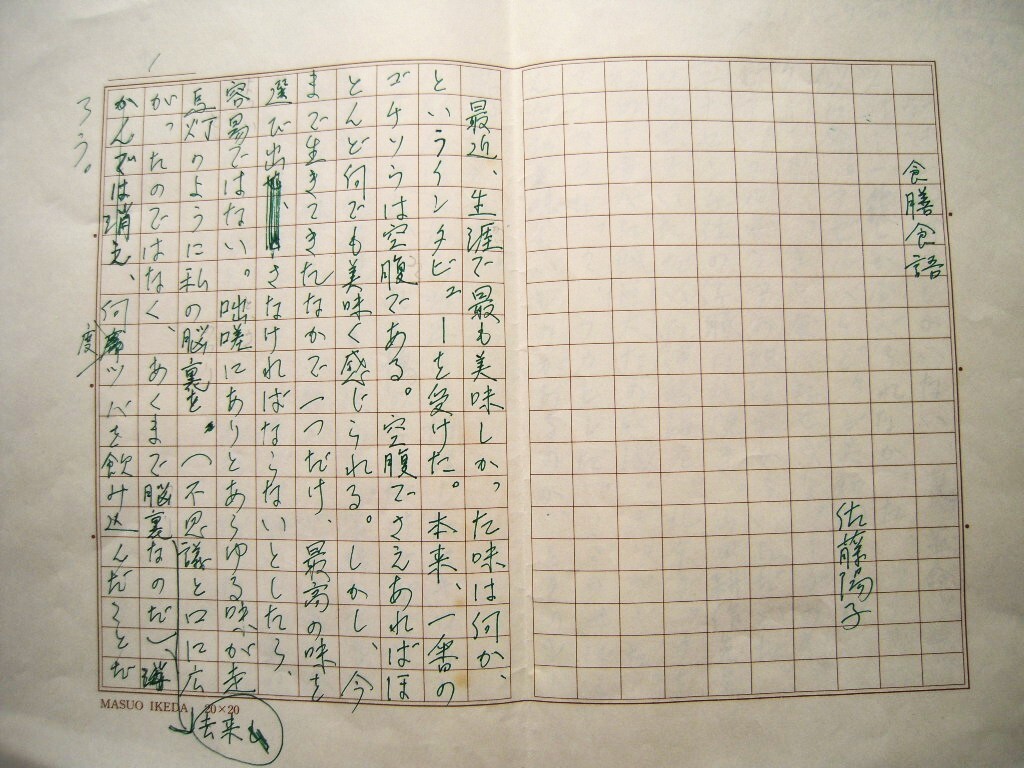 食膳食語
佐藤陽子
最近、生涯で最も美味しかった味は何か、
というインタビューを受けた。本来、一番の
ゴチソウは空腹である。空腹でさえあればほ
とんど何でも美味く感じられる。しかし、今
まで生きてきたなかで一つだけ、最高の味を
選び出さなければならないとしたら、
容易ではない。咄嗟にありとあらゆる味が走
馬灯のように私の脳裏を(不思議と口に広
がったのではなく、あくまで脳裏なのだ)去来し浮
かんでは消え、何度ツバを飲み込んだことだ
ろう。
MASUO IKEDA 20×20